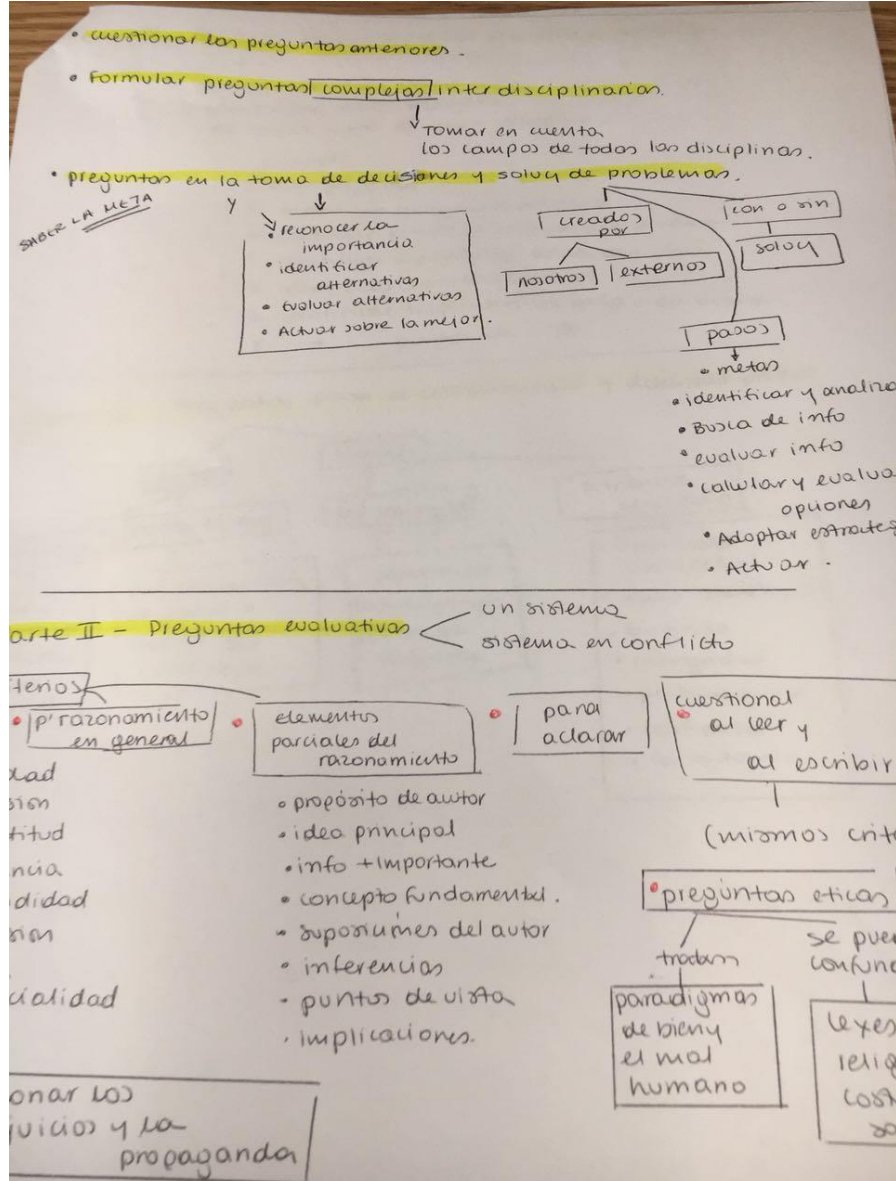 • cuestionar las preguntas anteriores.
• Formular preguntas complejas interdisciplinarias.
Tomar en cuenta
los campos de todas las disciplinas.
• preguntas en la toma de decisiones y soluç de problemas.
SABER LA META
y
• reconocer la
importancia
• identificar
alternativas
• Evaluar alternativas
• Actuar sobre la mejor.
creados
por
nosotros
externos
con o sin
soluç
pasos
• metas
• identificar y analiza
• Busca de info
• evaluar info
• calcular y evalua
opciones
• Adoptar estrateg
• Actuar.
arte II - Preguntas evaluativas
un sistema
sistema en conflicto
terios
• p' razonamiento
en general
dad
sión
titud
ncia
didad
sión
cialidad
• elementos
parciales del
razonamiento
• propósito de autor
• idea principal
• info + importante
• concepto fundamental.
• suposiciones del autor
• inferencias
• puntos de vista
• implicaciones.
• para
aclarar
• cuestional
al leer y
al escribir
(mismos crite
• preguntas eticas
tratan
paradigmas
de bien y
el mal
humano
se pue
confund
leyes
relig
cost
so
onar los
juicios y la
propaganda